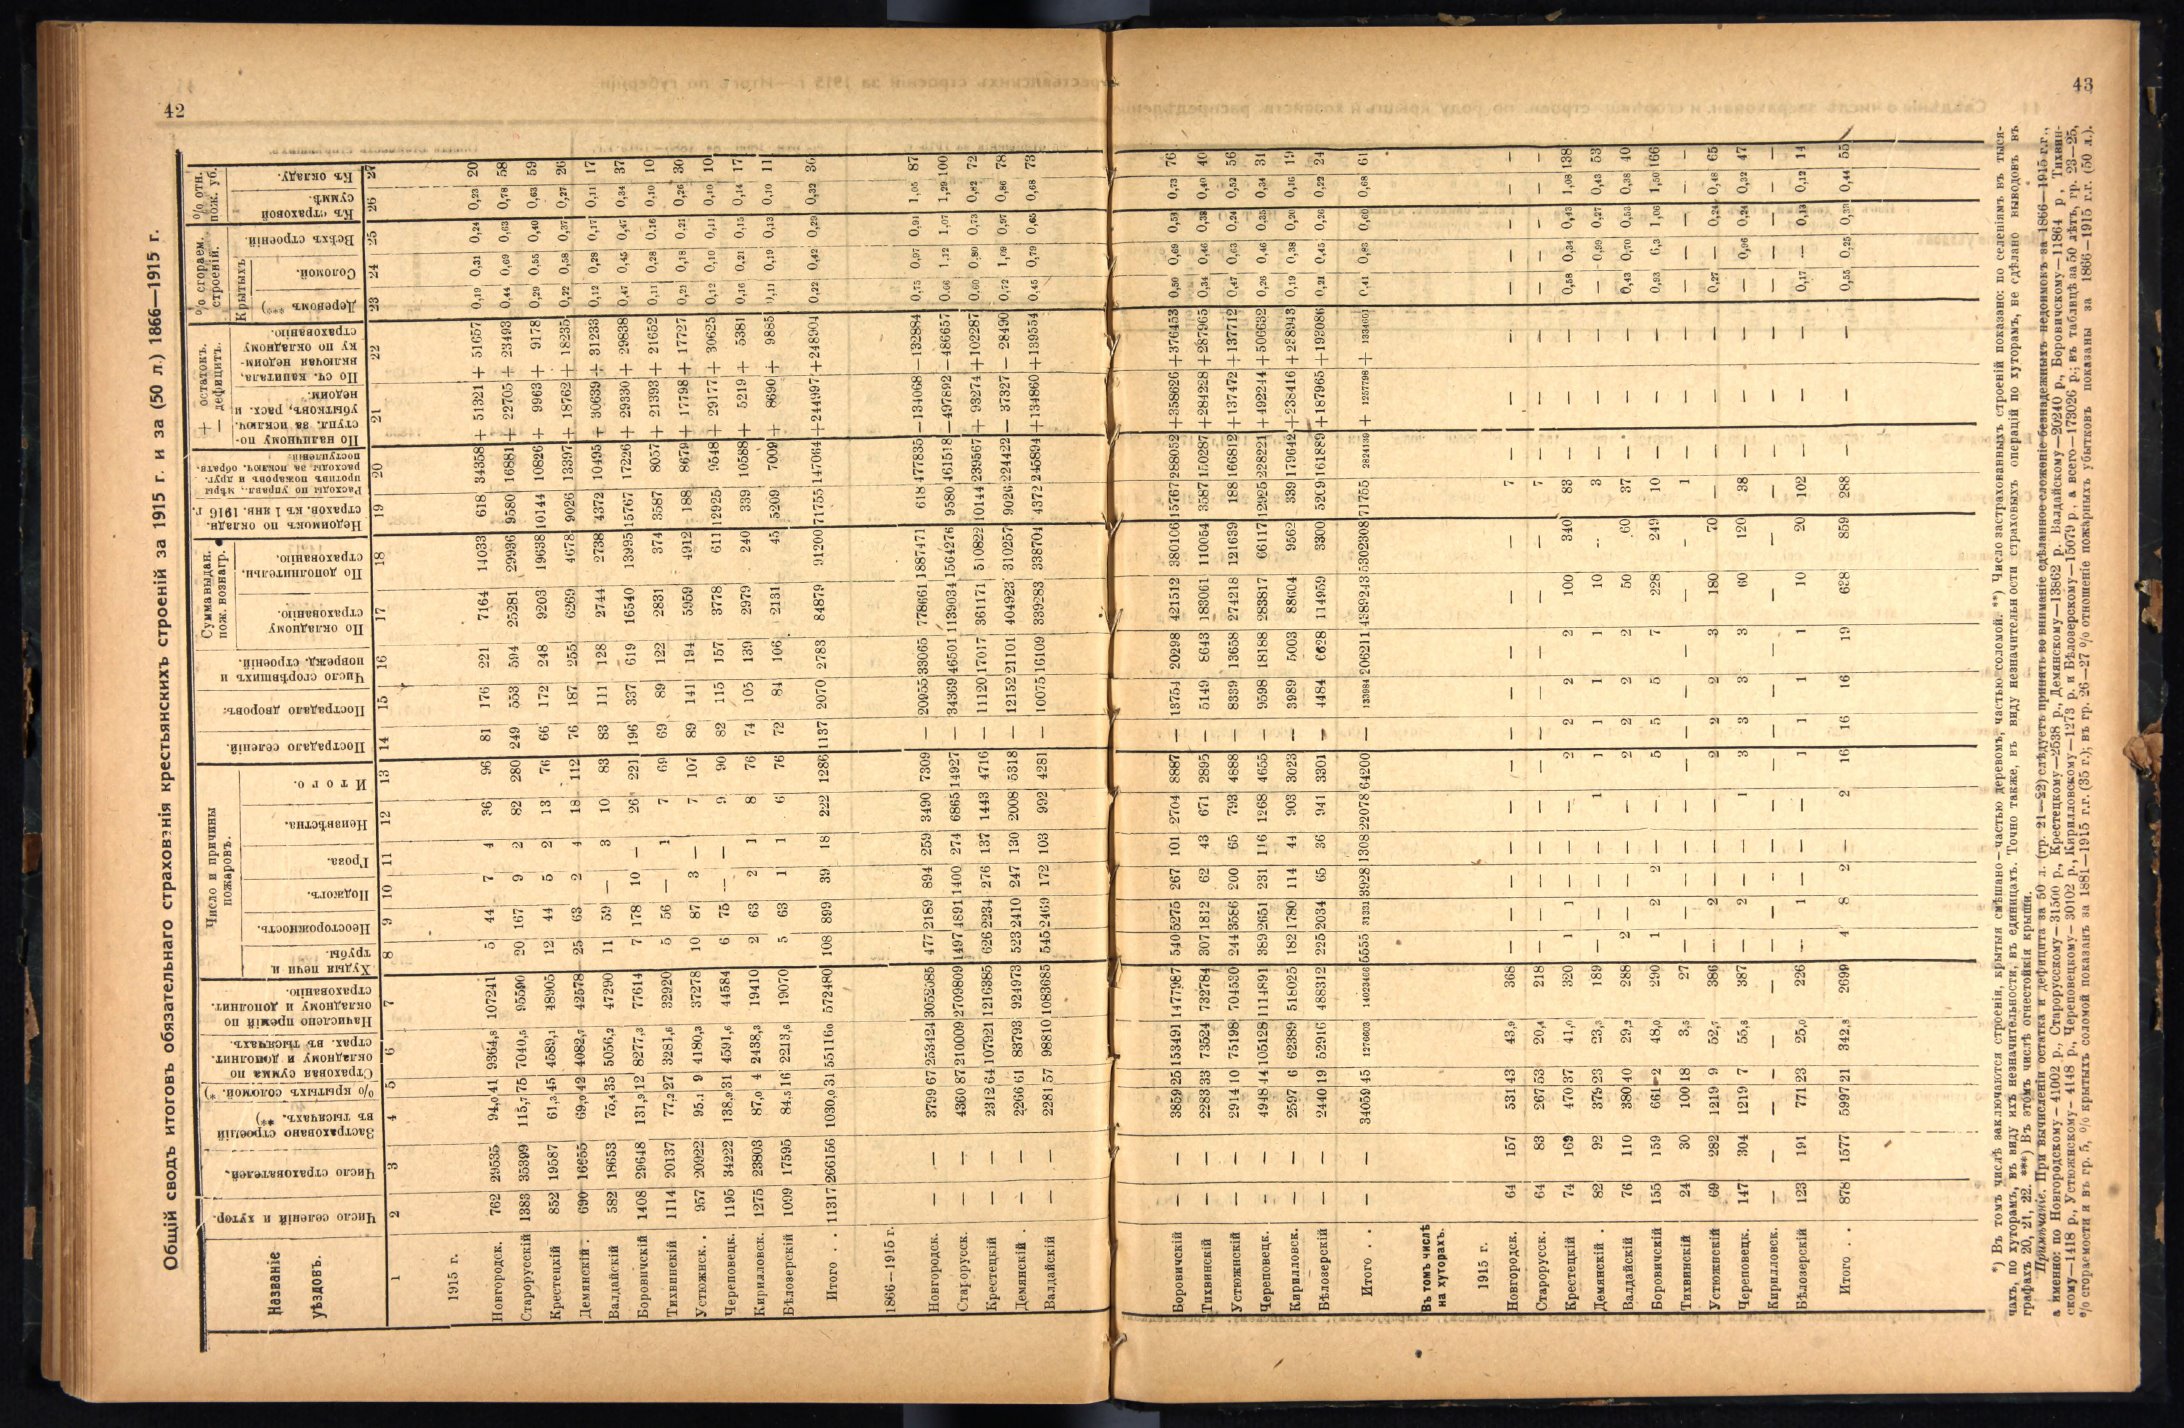 42
Общій сводъ итоговъ обязательнаго страхованія крестьянскихъ строеній за 1915 г. и за (50 л.) 1866—1915 г.
Названіе уѣздовъ.
Число селеній и хутор.
Число страхователей.
Застраховано строеній въ тысячахъ. **)
% крытыхъ соломой. *)
Страховая сумма по окладному и дополнит. страх. въ тысячахъ.
Начислено премій по окладному и дополнит. страхованію.
Число и причины пожаровъ.
Худыя печи и трубы.
Неосторожность.
Поджогъ.
Гроза.
Неизвѣстна.
Итого.
Пострадало селеній.
Пострадало дворовъ.
Число сгорѣвшихъ и поврежд. строеній.
Сумма выдан. пож. вознагр.
По окладному страхованію.
По дополнительн. страхованію.
Недоимокъ по окладн. страхов. къ 1 янв. 1916 г.
Расходы по управл., мѣры противъ пожаровъ и друг. расходы за исключ. обратн. поступленій.
+ остатокъ. — дефицитъ.
По наличному поступл. за исключ. убытковъ, расх. и недоим.
По сч. капитала, включая недоимку по окладному страхованію.
% сгораем. строеній.
Крытыхъ
Деревомъ ***)
Соломой.
Всѣхъ строеній.
% отн. пож. уб.
Къ страховой суммѣ.
Къ окладу.
1 2 3 4 5 6 7 8 9 10 11 12 13 14 15 16 17 18 19 20 21 22 23 24 25 26 27
1915 г.
Новгородск. 762 29535 94,0 41 9364,8 107241 5 44 7 4 36 96 81 176 221 7164 14033 618 34358 + 51321 + 51657 0,19 0,31 0,24 0,23 20
Старорусскій 1383 35399 115,7 75 7040,5 95590 20 167 9 2 82 280 249 553 594 25281 29936 9580 16881 + 22705 + 23493 0,44 0,69 0,63 0,78 58
Крестецкій 852 19587 61,3 45 4589,1 48905 12 44 5 2 13 76 66 172 248 9203 19638 10144 10826 + 9963 + 9178 0,29 0,55 0,40 0,63 59
Демянскій . 690 16655 69,0 42 4082,7 42578 25 63 2 4 18 112 76 187 255 6269 4678 9026 13397 + 18762 + 18235 0,22 0,58 0,37 0,27 26
Валдайскій 582 18653 75,4 35 5056,2 47290 11 59 — 3 10 83 83 111 128 2744 2738 4372 10495 + 30639 + 31233 0,12 0,28 0,17 0,11 17
Боровичскій 1408 29648 131,9 12 8277,3 77614 7 178 10 — 26 221 196 337 619 16540 13995 15767 17226 + 29330 + 29838 0,47 0,45 0,47 0,34 37
Тихвинскій 1114 20137 77,2 27 3281,6 32920 5 56 — 1 7 69 69 89 122 2831 374 3587 8057 + 21393 + 21652 0,11 0,28 0,16 0,10 10
Устюжнск. . 957 20922 95,1 9 4180,3 37278 10 87 3 — 7 107 89 141 194 5959 4912 188 8679 + 17798 + 17727 0,21 0,18 0,21 0,26 30
Череповецк. 1195 34222 138,9 31 4591,6 44584 6 75 — — 9 90 82 115 157 3778 611 12925 9548 + 29177 + 30625 0,12 0,10 0,11 0,10 10
Кирилловск. 1275 23803 87,0 4 2438,3 19410 2 63 2 1 8 76 74 105 139 2979 240 339 10588 + 5219 + 5381 0,16 0,21 0,15 0,14 17
Бѣлозерскій 1099 17595 84,5 16 2213,6 19070 5 63 1 1 6 76 72 84 106 2131 45 5209 7009 + 8690 + 9885 0,11 0,19 0,13 0,10 11
Итого . . 11317 266156 1030,0 31 55116,0 572480 108 899 39 18 222 1286 1137 2070 2783 84879 91200 71755 147064 +244997 +248904 0,22 0,42 0,29 0,32 36
1866—1915 г.
Новгородск. — — 3799 67 253424 3052085 477 2189 894 259 3490 7309 — 20955 33065 778661 1887471 618 477835 —134068 —132884 0,75 0,97 0,91 1,05 87
Старорусск. — — 4360 87 210009 2709809 1497 4891 1400 274 6865 14927 — 34369 46501 1139034 1564276 9580 461518 —497892 —486657 0,66 1,12 1,07 1,29 100
Крестецкій — — 2312 64 107921 1216385 626 2234 276 137 1443 4716 — 11120 17017 361171 510822 10144 239567 + 93274 +102287 0,60 0,80 0,73 0,82 72
Демянскій . — — 2266 61 83793 924973 523 2410 247 130 2008 5318 — 12152 21101 404923 310257 9026 224422 — 37327 — 28490 0,72 1,09 0,97 0,86 78
Валдайскій — — 2281 57 98810 1083685 545 2469 172 103 992 4281 — 10075 16109 339283 338704 4372 245894 +134860 +139554 0,45 0,79 0,65 0,68 73
43
Боровичскій — — 3859 25 153491 1477987 540 5275 267 101 2704 8887 — 13754 20298 421512 380106 15767 288052 +358626 +376453 0,50 0,69 0,54 0,73 76
Тихвинскій — — 2283 33 73524 732784 307 1812 62 43 671 2895 — 5149 8643 183061 110054 3587 150287 +284228 +287965 0,34 0,46 0,38 0,40 40
Устюжнскій — — 2914 10 75198 704530 244 3586 200 65 793 4888 — 8339 13658 274218 121639 188 166812 +137472 +137712 0,47 0,63 0,24 0,52 56
Череповецк. — — 4948 44 105128 1114891 389 2651 231 116 1268 4655 — 9598 18188 283817 66117 12925 228221 +492244 +506632 0,26 0,46 0,35 0,34 31
Кирилловск. — — 2597 6 62389 518025 182 1780 114 44 903 3023 — 3989 5003 88604 9562 339 179642 +238416 +238943 0,19 0,38 0,20 0,16 19
Бѣлозерскій — — 2440 19 52916 488312 225 2034 65 36 941 3301 — 4484 6628 114959 3300 5209 161889 +187965 +193086 0,21 0,45 0,26 0,22 24
Итого . . . — — 34059 45 1276603 14023466 5555 31331 3928 1308 22078 64200 — 133984 206211 4389243 5302308 71755 2824139 + 1257798 + 1334601 0,41 0,83 0,60 0,68 61
Въ томъ числѣ на хуторахъ.
1915 г.
Новгородск. 64 157 531 43 43,9 368 — — — — — — — — — — — 7 — — — — — — — —
Старорусск. 64 83 267 53 20,4 218 — — — — — — — — — — — 7 — — — — — — — —
Крестецкій 74 169 470 37 41,0 320 1 1 — — — 2 2 2 2 100 340 83 — — — 0,58 0,34 0,43 1,08 138
Демянскій . 82 92 379 23 23,3 189 — — — — 1 1 1 1 1 10 — 3 — — — — 0,99 0,27 0,43 53
Валдайскій 76 110 380 40 29,2 288 2 — — — — 2 2 2 2 50 60 37 — — — 0,43 0,70 0,53 0,38 40
Боровичскій 155 159 661 2 48,0 290 1 2 2 — — 5 5 5 7 228 249 10 — — — 0,93 6,3 1,06 1,50 166
Тихвинскій 24 30 100 18 3,5 27 — — — — — — — — — — — 1 — — — — — — — —
Устюжнскій 69 282 1219 9 52,7 386 — 2 — — — 2 2 2 3 180 70 — — — — 0,27 — 0,24 0,48 65
Череповецк. 147 304 1219 7 55,8 387 — 2 — — 1 3 3 3 3 60 120 38 — — — — 0,96 0,24 0,32 47
Кирилловск. — — — — — — — — — — — — — — — — — — — — — — — — — —
Бѣлозерскій 123 191 771 23 25,0 226 — 1 — — — 1 1 1 1 10 20 102 — — — 0,17 — 0,13 0,12 14
Итого . . 878 1577 5997 21 342,8 2699 4 8 2 — 2 16 16 16 19 638 859 288 — — — 0,55 0,25 0,33 0,44 55
*) Въ томъ числѣ заключаются строенія, крытыя смѣшано—частью деревомъ, частью соломой. **) Число застрахованныхъ строеній показано: по селеніямъ въ тыся-
чахъ, по хуторамъ, въ виду ихъ незначительности, въ единицахъ. Точно также, въ виду незначительности страховыхъ операцій по хуторамъ, не сдѣлано выводовъ въ
графахъ 20, 21, 22. ***) Въ этомъ числѣ огнестойкія крыши.
Примѣчаніе. При вычисленіи остатка и дефицита за 50 л. (гр. 21—22) слѣдуетъ принять во вниманіе сдѣланное сложеніе безнадежныхъ недоимокъ за 1866—1915 г.г.,
а именно: по Новгородскому—41002 р., Старорусскому—31500 р., Крестецкому—2538 р., Демянскому—13862 р. Валдайскому—20240 р., Боровичскому—11864 р., Тихвин-
скому—1418 р., Устюжнскому—4148 р., Череповецкому—30102 р., Кирилловскому—1273 р. и Бѣлозерскому—15079 р., а всего—173026 р.; въ таблицѣ за 50 лѣтъ, гр. 23—25,
% сгораемости и въ гр. 5, % крытыхъ соломой показанъ за 1881—1915 г.г. (35 г.); въ гр. 26—27 % отношеніе пожарныхъ убытковъ показаны за 1866—1915 г.г. (50 л.).